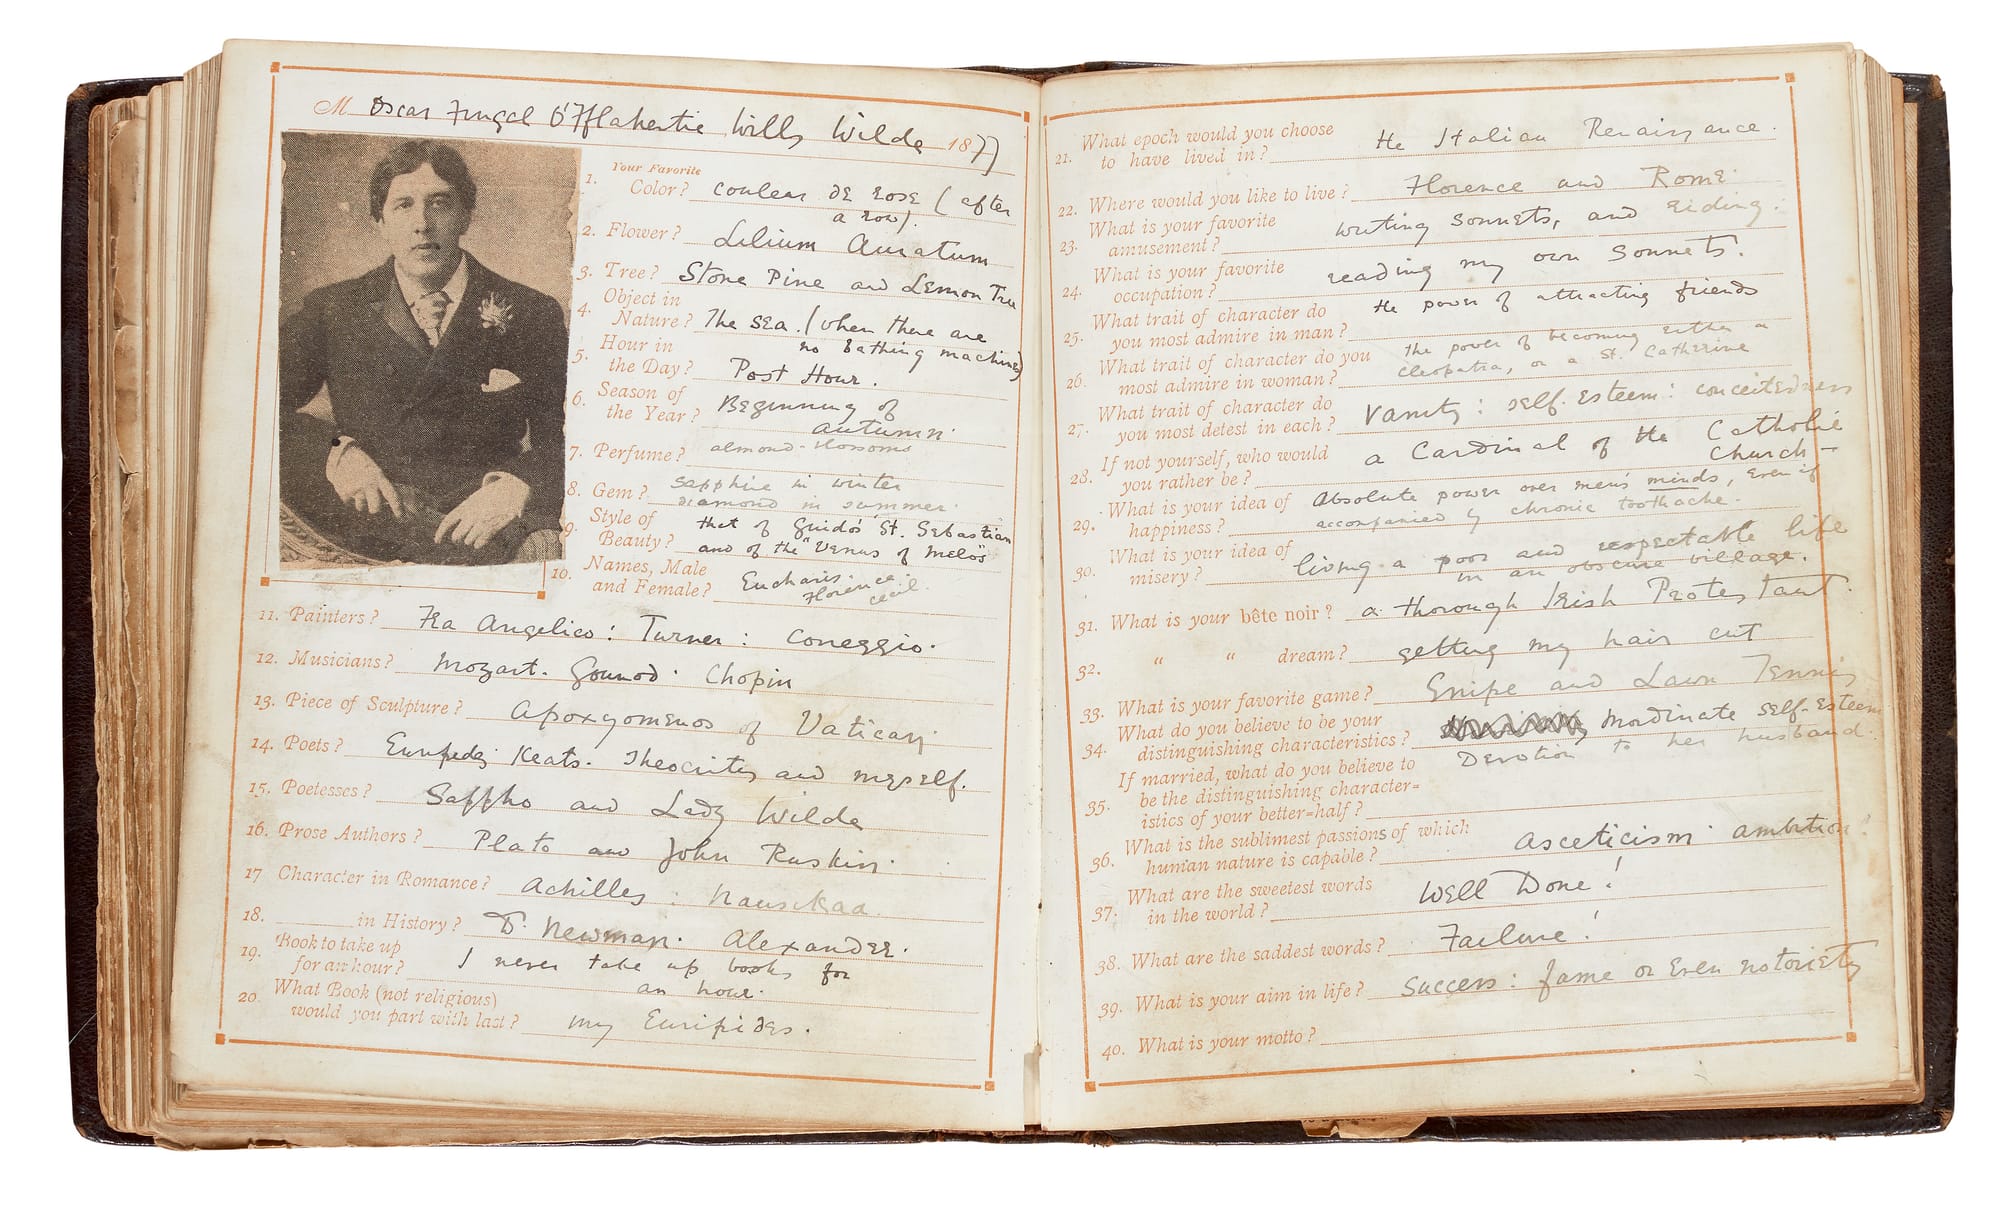 M Oscar Fingal O'Fflahertie Wills Wilde 1877
Your Favorite
1. Color? couleur de rose (after
a row).
2. Flower? Lilium Auratum
3. Tree? Stone Pine and Lemon Tree
4. Object in
Nature? The sea. (when there are
no bathing machines)
5. Hour in
the Day? Post Hour.
6. Season of
the Year? Beginning of
autumn.
7. Perfume? almond-blossoms
8. Gem? sapphire in winter
diamond in summer.
9. Style of
Beauty? that of Guido's St. Sebastian
and of the "Venus of Melos"
10. Names, Male
and Female? Eucharis. Florence
Cecil.
11. Painters? Fra Angelico: Turner: Correggio.
12. Musicians? Mozart. Gounod. Chopin
13. Piece of Sculpture? Apoxyomenos of Vatican
14. Poets? Euripides Keats. Theocritus and myself.
15. Poetesses? Sappho and Lady Wilde
16. Prose Authors? Plato and John Ruskin.
17 Character in Romance? Achilles: Nausikaa
18. in History? Dr. Newman. Alexander.
19. Book to take up
for an hour? I never take up books for
an hour.
20. What Book (not religious)
would you part with last? my Euripides.
21. What epoch would you choose
to have lived in? the Italian Renaissance.
22. Where would you like to live? Florence and Rome.
23. What is your favorite
amusement? writing sonnets, and riding.
24. What is your favorite
occupation? reading my own sonnets.
25. What trait of character do
you most admire in man? the power of attracting friends
26. What trait of character do you
most admire in woman? the power of becoming either a
Cleopatra, or a St. Catherine
27. What trait of character do
you most detest in each? Vanity: self-esteem: conceitedness
28. If not yourself, who would
you rather be? a Cardinal of the Catholic
Church—
29. What is your idea of
happiness? Absolute power over men's minds, even if
accompanied by chronic toothache.
30. What is your idea of
misery? living a poor and respectable life
in an obscure village.
31. What is your bête noir? a thorough Irish Protestant.
32. " " dream? getting my hair cut
33. What is your favorite game? Snipe and Lawn Tennis
34. What do you believe to be your
distinguishing characteristics? inordinate self-esteem
35. If married, what do you believe to
be the distinguishing character=
istics of your better=half? Devotion to her husband.
36. What is the sublimest passions of which
human nature is capable? asceticism. ambition.
37. What are the sweetest words
in the world? Well Done!
38. What are the saddest words? Failure!
39. What is your aim in life? Success: fame or even notoriety
40. What is your motto?